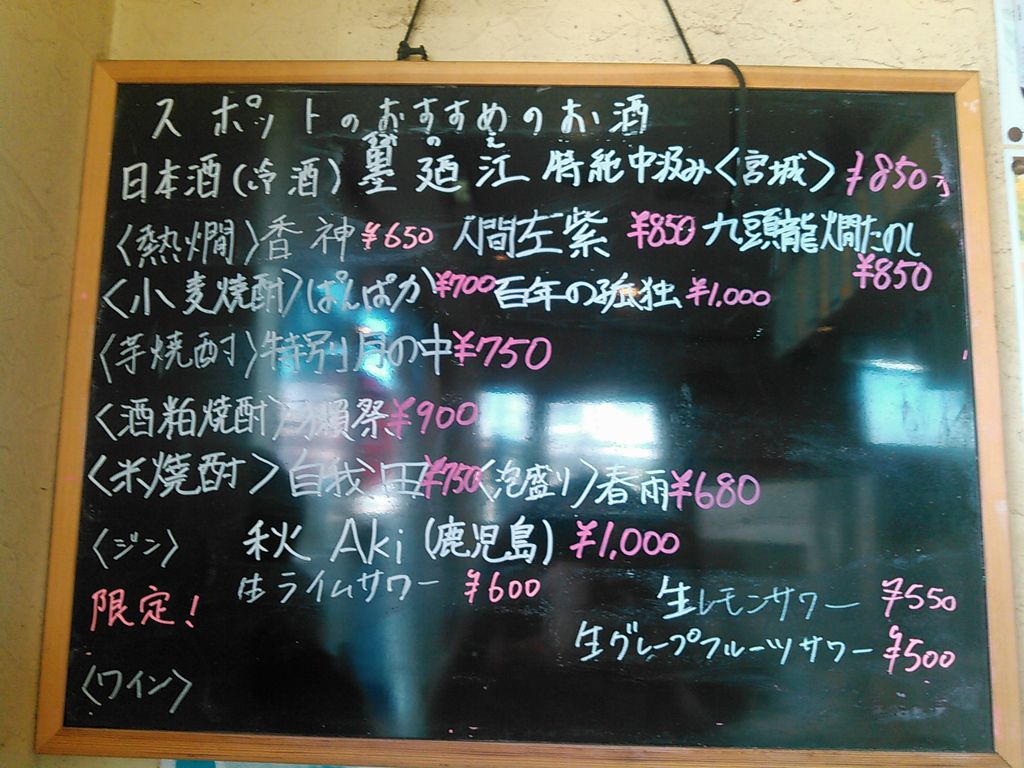 スポットのおすすめのお酒
日本酒(冷酒) 墨廼江 特純中汲み〈宮城〉 ¥850
すみ の え
〈熱燗〉香神 ¥650 人間左紫 ¥850 九頭龍燗たのし ¥850
〈小麦焼酎〉ぱんぱか ¥700 百年の孤独 ¥1.000
〈芋焼酎〉特別月の中 ¥750
〈酒粕焼酎〉獺祭 ¥900
〈米焼酎〉自我田 ¥750 〈泡盛り〉春雨 ¥680
〈ジン〉 秋 Aki (鹿児島) ¥1,000
限定! 生ライムサワー ¥600 生レモンサワー ¥550
生グレープフルーツサワー ¥500
〈ワイン〉